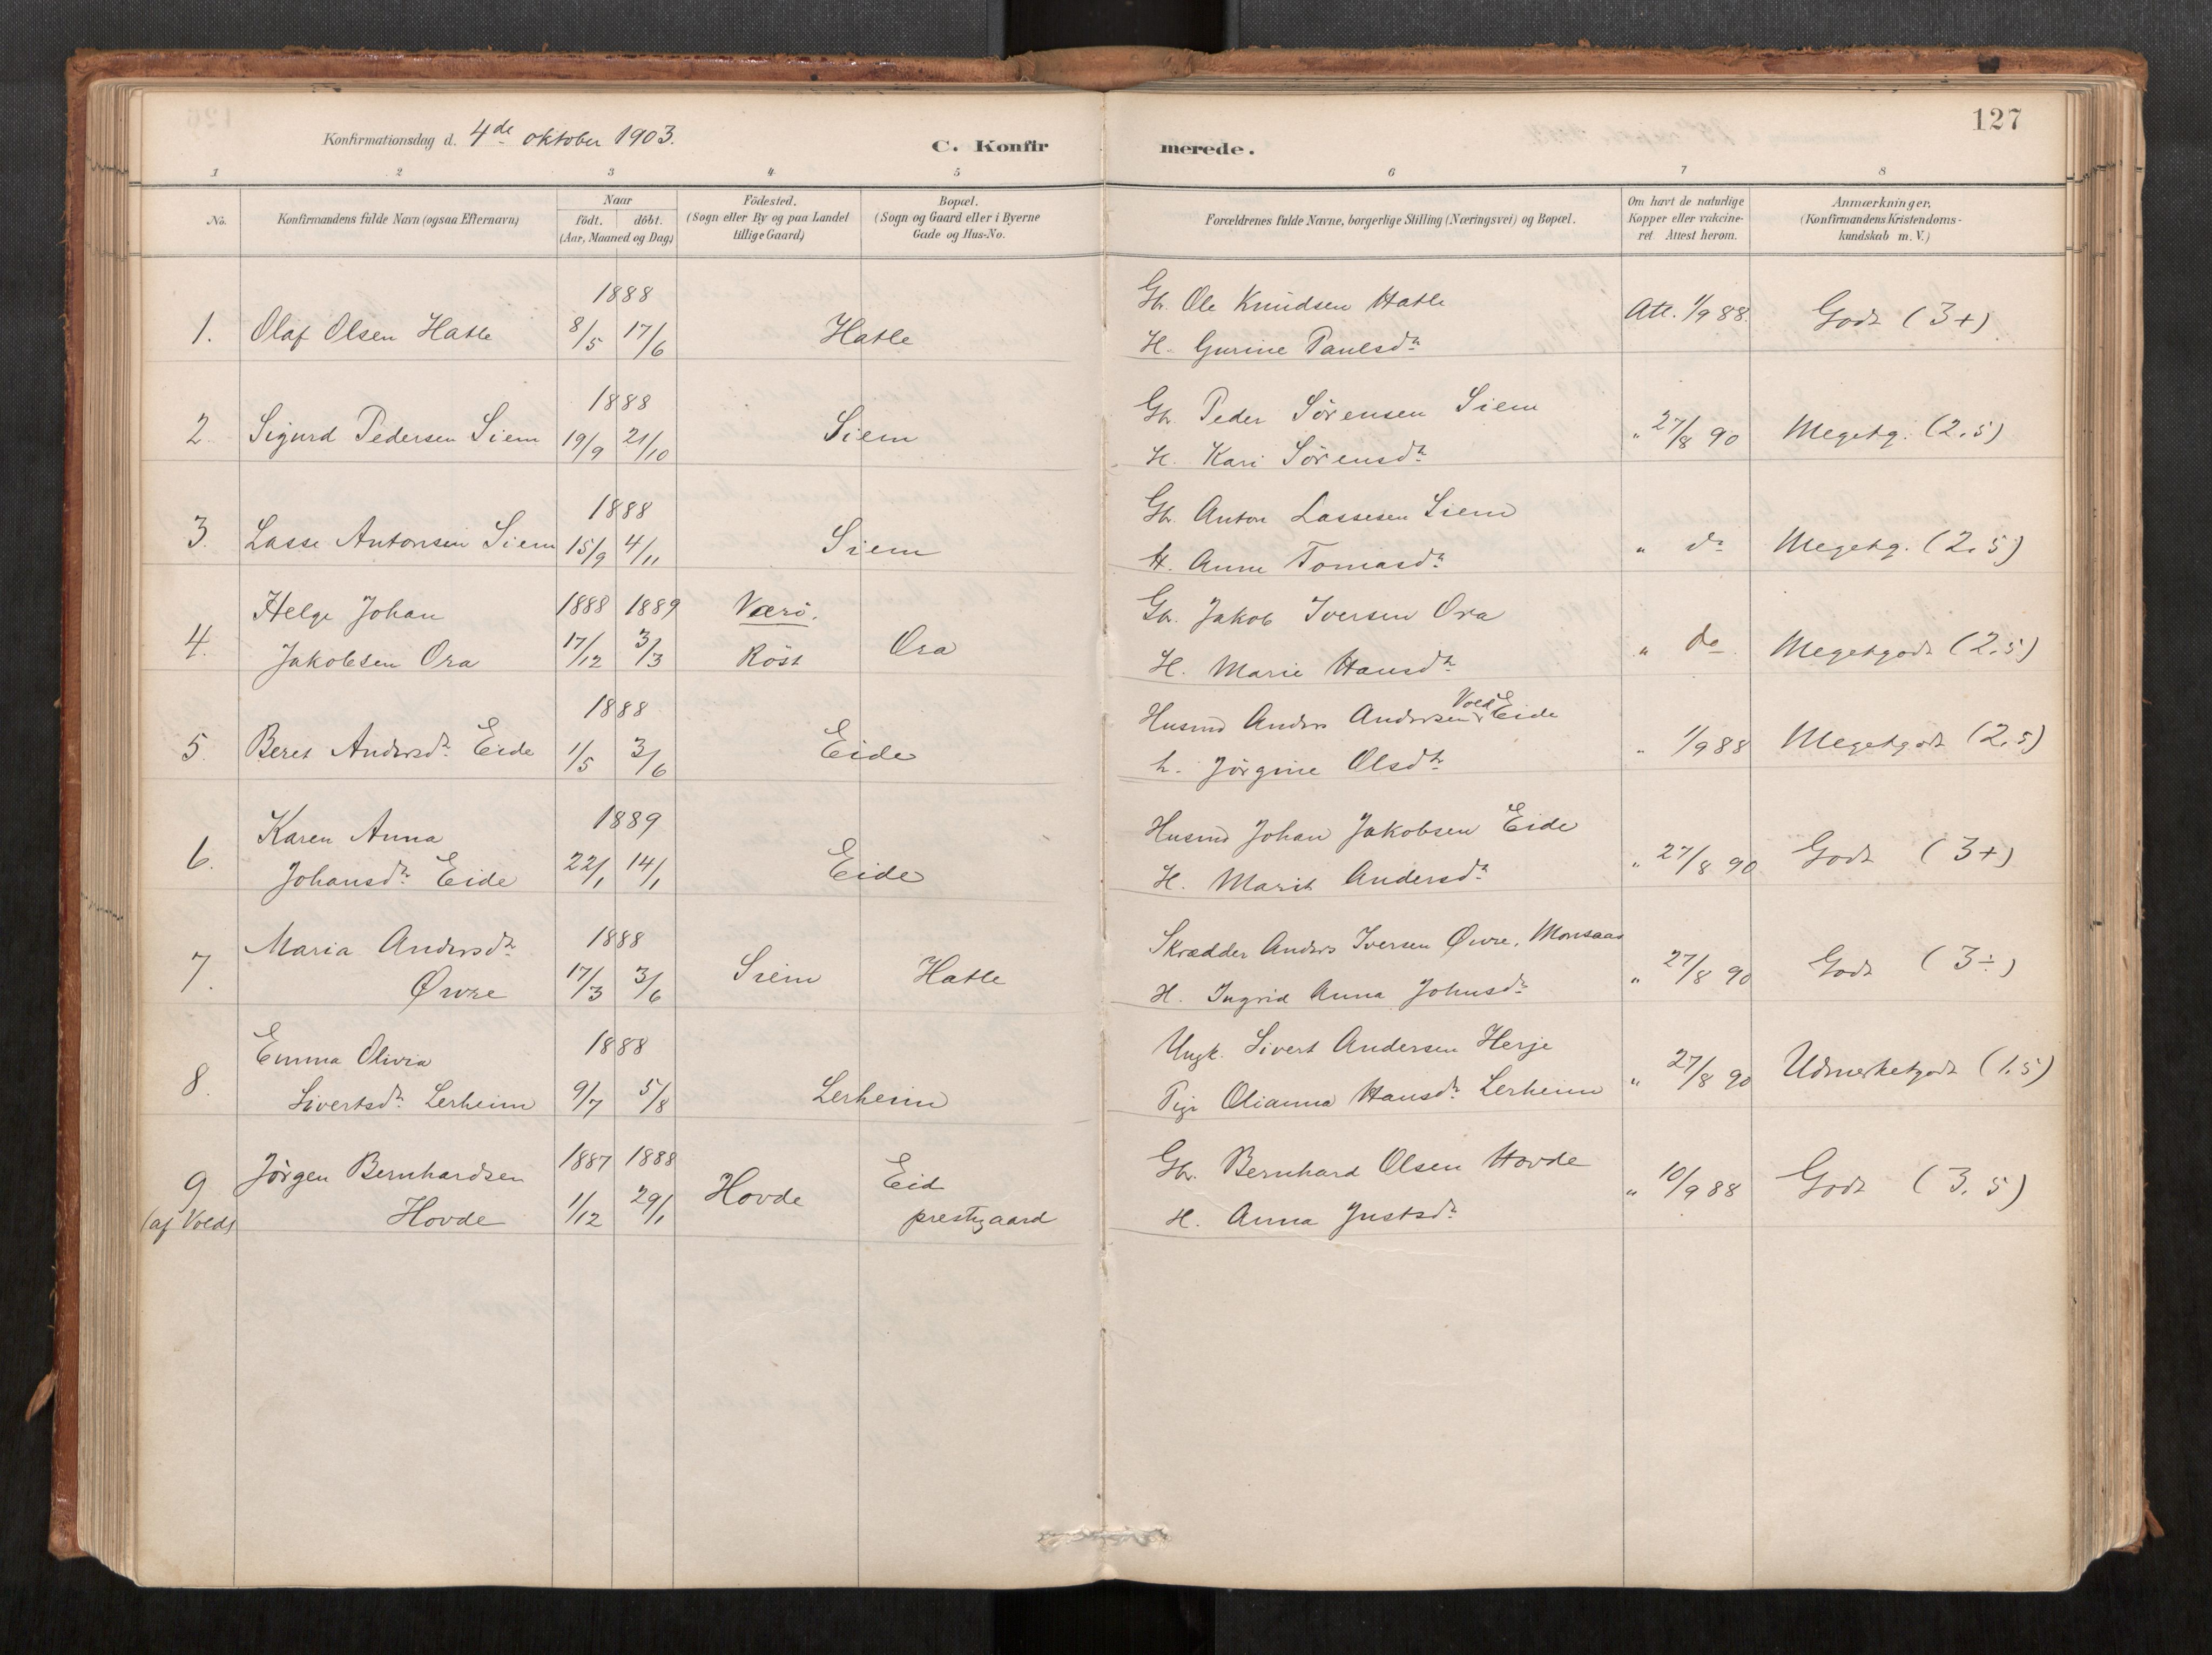 127
Konfirmationsdag d. 4de oktober 1903.
C. Konfirmerede.
1 2 3 4 5 6 7 8
No.
Konfirmandens fulde Navn (ogsaa Efternavn)
Naar
födt. döbt.
(Aar, Maaned og Dag)
Födested.
(Sogn eller By og paa Landet
tillige Gaard)
Bopæl.
(Sogn og Gaard eller i Byerne
Gade og Hus-No.
Forældrenes fulde Navne, borgerlige Stilling (Næringsvei) og Bopæl.
Om havt de naturlige
Kopper eller vakcine-
ret. Attest herom.
Anmærkninger,
(Konfirmandens Kristendoms-
kundskab m. V.)
1888
1. Olaf Olsen Hatle 8/5 17/6 Hatle
Gbr. Ole Knudsen Hatle
H. Gurine Paulsdr
Att. 1/9 88. Godt (3+)
1888
2. Sigurd Pedersen Siem 19/9 21/10 Siem
Gbr. Peder Sörensen Siem
H. Kari Sörensdr
" 27/8 90 Megetg. (2,5)
1888
3. Lasse Antonsen Siem 15/9 4/11 Siem
Gbr. Anton Lassesen Siem
H. Anne Tomasdr
" do Megetg. (2,5)
Helge Johan 1888 1889 Værö.
4. Jakobsen Ora 17/12 3/3 Röst Ora
Gbr. Jakob Iversen Ora
H. Marie Hansdr
" do Megetgodt (2,5)
1888
5. Beret Andersdr Eide 1/5 3/6 Eide
Husmd Anders Andersen Vold Eide
h. Jörgine Olsdr
" 1/9 88 Megetgodt (2,5)
Karen Anna 1889
6. Johansdr Eide 22/1 14/1 Eide
Husmd Johan Jakobsen Eide
H. Marit Andersdr
" 27/8 90 Godt (3+)
Maria Andersdr 1888
7. Øvre 17/3 3/6 Siem Hatle
Skrædder Anders Iversen Øvre, Monsaas
H. Ingrid Anna Johnsdr
" 27/8 90 Godt (3÷)
Emma Olivia 1888
8. Sivertsdr Lerheim 9/7 5/8 Lerheim
Ungk. Sivert Andersen Herje
Pige Olianna Hansdr Lerheim
" 27/8 90 Udmerketgodt (1,5)
9 Jörgen Bernhardsen 1887 1888 Eid
(af Vold) Hovde 1/12 29/1 Hovde prestgaard
Gbr. Bernhard Olsen Hovde
H. Anna Justsdr
" 10/9 88 Godt (3,5)